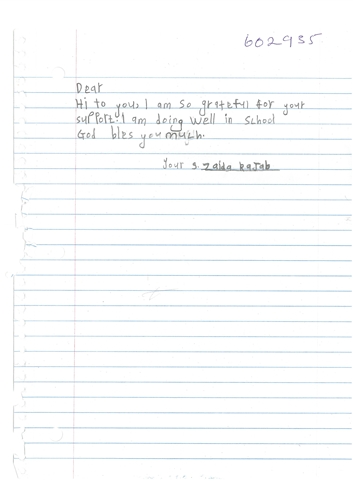 602935
Dear
Hi to you, I am so grateful for your
support. I am doing well in school
God bles you much.
Your s. Zaida Rajab